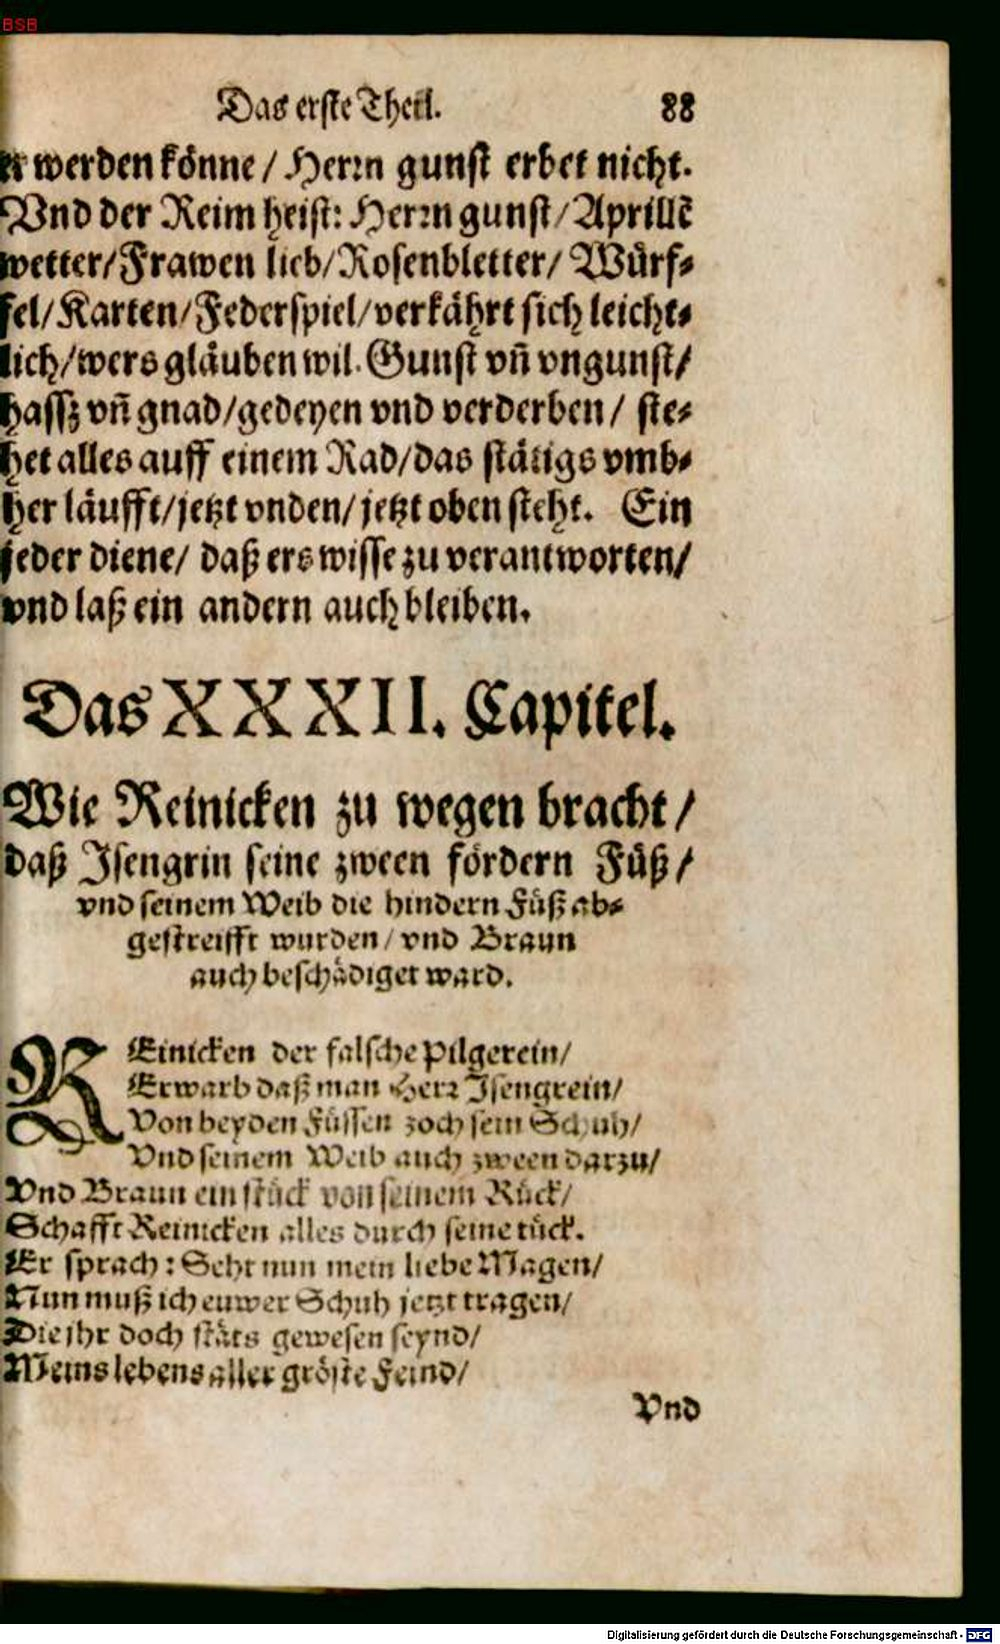 BSB
Das erste Theil. 88
er werden könne / Herꝛn gunst erbet nicht.
Vnd der Reim heist: Herꝛn gunst / Aprillē
wetter / Frawen lieb / Rosenbletter / Würf⸗
fel / Karten / Federspiel / verkährt sich leicht⸗
lich / wers gläuben wil. Gunst vñ vngunst /
hassz vñ gnad / gedeyen vnd verderben / ste⸗
het alles auff einem Rad / das stätigs vmb⸗
her läufft / jetzt vnden / jetzt oben steht. Ein
jeder diene / daß ers wisse zu verantworten /
vnd laß ein andern auch bleiben.
Das XXXII. Capitel.
Wie Reinicken zu wegen bracht /
daß Isengrin seine zween fördern Füß /
vnd seinem Weib die hindern Füß ab⸗
gestreifft wurden / vnd Braun
auch beschädiget ward.
REinicken der falsche Pilgerein /
Erwarb daß man Herꝛ Isengrein /
Von beyden Füssen zoch sein Schuh /
Vnd seinem Weib auch zween darzu /
Vnd Braun ein stück von seinem Rück /
Schafft Reinicken alles durch seine tück.
Er sprach : Seht nun mein liebe Magen /
Nun muß ich euwer Schuh jetzt tragen /
Die ihr doch stäts gewesen seynd /
Meins lebens aller gröste Feind /
Vnd
Digitalisierung gefördert durch die Deutsche Forschungsgemeinschaft - DFG